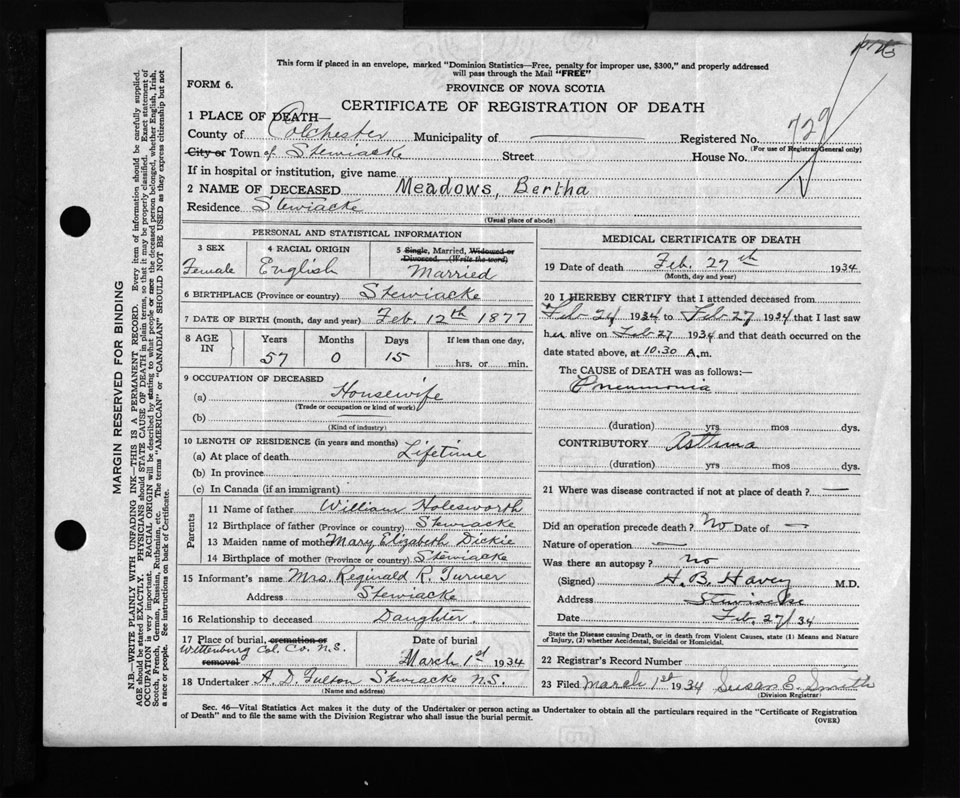 This form if placed in an envelope, marked "Dominion Statistics—Free, penalty for improper use, $300," and properly addressed
will pass through the Mail "FREE"
FORM 6.
PROVINCE OF NOVA SCOTIA
CERTIFICATE OF REGISTRATION OF DEATH
1 PLACE OF DEATH—
County of Colchester Municipality of Registered No. 729
(For use of Registrar General only)
City or Town of Stewiacke Street House No.
If in hospital or institution, give name
2 NAME OF DECEASED Meadows, Bertha
Residence Stewiacke
(Usual place of abode)
PERSONAL AND STATISTICAL INFORMATION
3 SEX Female
4 RACIAL ORIGIN English
5 Single, Married, Widowed or Divorced. (Write the word) Married
6 BIRTHPLACE (Province or country) Stewiacke
7 DATE OF BIRTH (month, day and year) Feb. 12th 1877
8 AGE IN
Years Months Days If less than one day,
57 0 15 hrs. or min.
9 OCCUPATION OF DECEASED
(a) Housewife
(Trade or occupation or kind of work)
(b) —
(Kind of industry)
10 LENGTH OF RESIDENCE (in years and months)
(a) At place of death Lifetime
(b) In province
(c) In Canada (if an immigrant)
Parents
11 Name of father William Holesworth
12 Birthplace of father (Province or country) Stewiacke
13 Maiden name of mother Mary Elizabeth Dickie
14 Birthplace of mother (Province or country) Stewiacke
15 Informant's name Mrs. Reginald R. Turner
Address Stewiacke
16 Relationship to deceased Daughter.
17 Place of burial, cremation or removal Wittenburg Col. Co. N.S.
Date of burial March 1st 1934
18 Undertaker A. D. Fulton Stewiacke N.S.
(Name and address)
MEDICAL CERTIFICATE OF DEATH
19 Date of death Feb. 27th 1934
(Month, day and year)
20 I HEREBY CERTIFY that I attended deceased from
Feb 24 1934 to Feb 27 1934 that I last saw
her alive on Feb 27 1934 and that death occurred on the
date stated above, at 10.30 A.m.
The CAUSE of DEATH was as follows:—
Pneumonia
(duration) yrs mos dys.
CONTRIBUTORY Asthma
(duration) yrs mos dys.
21 Where was disease contracted if not at place of death? —
Did an operation precede death? No Date of —
Nature of operation —
Was there an autopsy? no
(Signed) H. B. Havey M.D.
Address Stewiacke
Date Feb. 27/34
State the Disease causing Death, or in death from Violent Causes, state (1) Means and Nature
of Injury, (2) whether Accidental, Suicidal or Homicidal.
22 Registrar's Record Number
23 Filed March 1st 1934 Susan E. Smith
(Division Registrar)
Sec. 46—Vital Statistics Act makes it the duty of the Undertaker or person acting as Undertaker to obtain all the particulars required in the "Certificate of Registration
of Death" and to file the same with the Division Registrar who shall issue the burial permit.
(OVER)
MARGIN RESERVED FOR BINDING
N.B.—WRITE PLAINLY WITH UNFADING INK—THIS IS A PERMANENT RECORD. Every item of information should be carefully supplied.
AGE should be stated EXACTLY. PHYSICIANS should STATE CAUSE OF DEATH in plain terms, so that it may be properly classified. Exact statement of
OCCUPATION is very important. RACIAL ORIGIN will be described by stating to what people or race the deceased person belonged, whether English, Irish,
Scotch, French, German, Russian, Ruthenian, etc. The terms "AMERICAN" or "CANADIAN" SHOULD NOT BE USED as they express citizenship but not
a race or people. See instructions on back of Certificate.